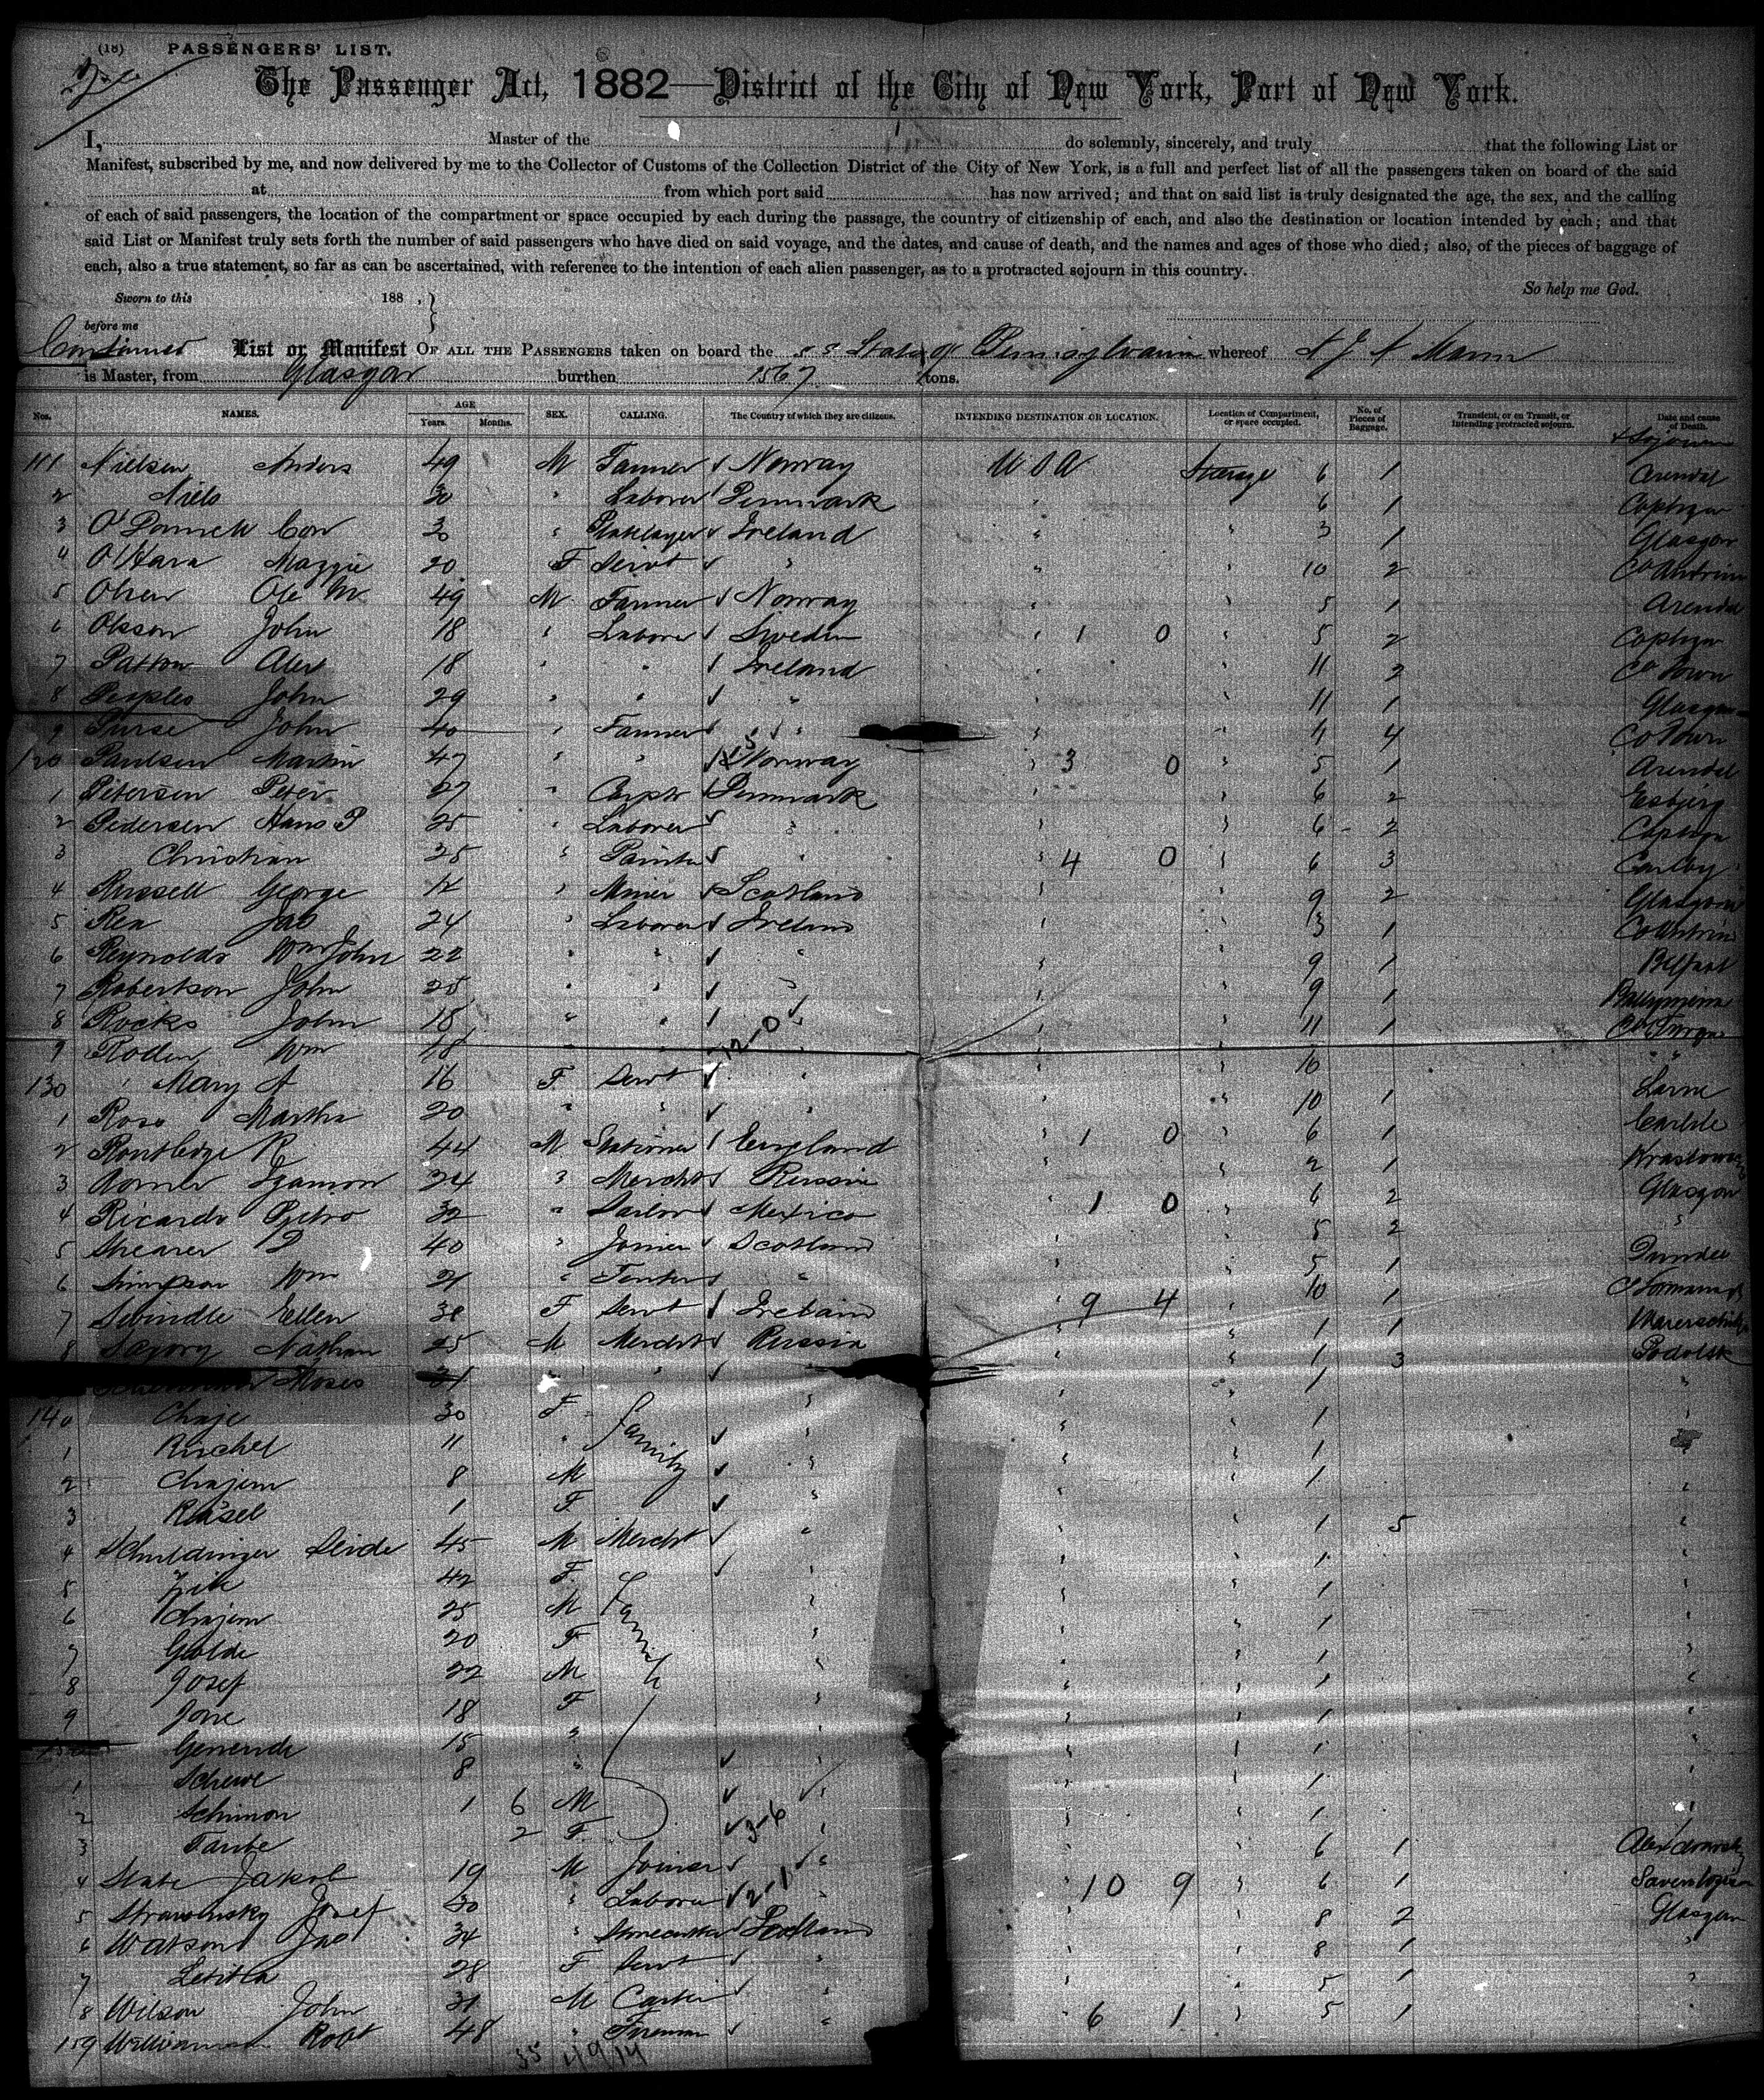 (18) PASSENGERS' LIST.
The Passenger Act, 1882—District of the City of New York, Port of New York.
I, Master of the do solemnly, sincerely, and truly that the following List or
Manifest, subscribed by me, and now delivered by me to the Collector of Customs of the Collection District of the City of New York, is a full and perfect list of all the passengers taken on board of the said
at from which port said has now arrived; and that on said list is truly designated the age, the sex, and the calling
of each of said passengers, the location of the compartment or space occupied by each during the passage, the country of citizenship of each, and also the destination or location intended by each; and that
said List or Manifest truly sets forth the number of said passengers who have died on said voyage, and the dates, and cause of death, and the names and ages of those who died; also, of the pieces of baggage of
each, also a true statement, so far as can be ascertained, with reference to the intention of each alien passenger, as to a protracted sojourn in this country.
So help me God.
Sworn to this 188 , }
before me
Continued List or Manifest OF ALL THE PASSENGERS taken on board the s s State of Pennsylvania whereof A J A Mann
is Master, from Glasgow burthen 1567 tons.
Nos. NAMES. AGE Years. Months. SEX. CALLING. The Country of which they are citizens. INTENDING DESTINATION OR LOCATION. Location of Compartment, or space occupied. No. of Pieces of Baggage. Transient, or on Transit, or intending protracted sojourn. Date and cause of Death.
111 Nielsen Anders 49 M Farmer Norway U S A Steerage 6 1 Arendal
2 Niels 30 " Laborer Denmark " 6 1 Cophgn
3 O'Donnell Con 30 " Platelayer Ireland " 3 1 Glasgow
4 O'Hara Maggie 20 F Servt " " 10 2 Co Antrim
5 Olsen Ole M 49 M Farmer Norway 5 1 Arendal
6 Olsson John 18 " Laborer Sweden 1 0 5 2 Cophgn
7 Patton Alex 18 " " Ireland 11 2 Co Down
8 Peoples John 29 " " " 11 1 Glasgow
9 Purse John 40 " Farmer " 4 4 Co Down
120 Paulsen Martin 47 " " Norway 3 0 5 1 Arendal
1 Petersen Peter 27 " Carptr Denmark 6 2 Esbjerg
2 Pedersen Hans P 25 " Laborer " 6 2 Cophgn
3 Christian 25 " Painter " 4 0 6 3
4 Russell George 12 " Miner Scotland 9 2 Glasgow
5 Rea Jas 24 " Laborer Ireland 3 1 Co Antrim
6 Reynolds Wm John 22 " " 9 1 Belfast
7 Robertson John 25 " " " 9 1 Ballymena
8 Rocks John 18 " " 11 1
9 Roden Wm 18 " " 12-0 10 " "
130 " Mary A 16 F Servt " 10 1 Larne
1 Ross Martha 20 " " " 10 1
2 Routledge R 44 M Stationer England 1 0 6 1 Carlisle
3 Szamon 24 " Mercht Russia 2 1
4 Ricardo Pietro 32 " Sailor Mexico 1 0 6 2 Glasgow
5 Shearer D 40 " Joiner Scotland 5 2 "
6 Simpson Wm 21 " Tenter " 5 1 Dundee
7 Swindle Ellen 30 F Servt Ireland 9 4 10 1
8 Nathan 25 M Mercht Russia 1 1
Moses 31 " " 1 3 Podolsk
140 Chaje 30 F Family " 1 "
1 Ruchel 11 " " 1
2 Chajem 8 M " 1
3 Reisel 1 F "
4 Schneidinger Seide 45 M Mercht " 1 5
5 42 F Family " 1
6 Chajem 25 M " 1
7 Golde 20 F " 1
8 Josef 22 M " 1
9 18 F " 1
15 " 1
1 Schewe 8 " " 1
2 Schimon 1 6 M " 1
3 Taube 2 F 3-6 "
4 Slate Jakob 19 M Joiner " 6 1
5 Strawinsky Josef 30 " Laborer 2-1 10 9 6 1
6 Watson Jas 34 " Stonecutter Scotland 8 2 Glasgow
7 Letitia 28 F Servt " 8 1 "
8 Wilson John 31 M Carter " 5 1 "
159 Williamson Robt 48 " Fireman " 6 1 5 1